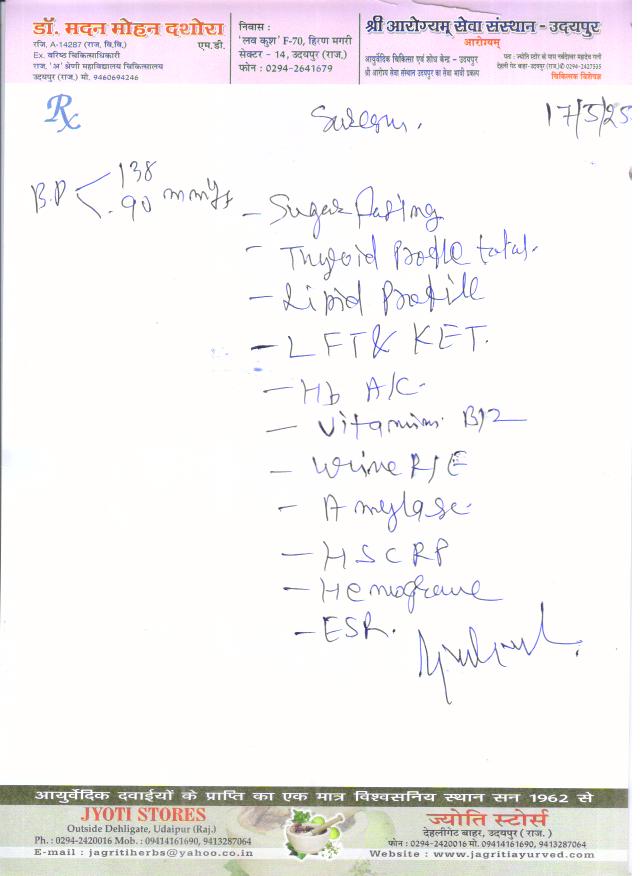 डॉ. मदन मोहन दशोरा
एम.डी.
रजि. A-14287 (राज. वि.वि.)
Ex. वरिष्ठ चिकित्साधिकारी
राज. 'अ' श्रेणी महाविद्यालय चिकित्सालय
उदयपुर (राज.) मो. 9460694246
निवास :
'लव कुश' F-70, हिरण मगरी
सेक्टर - 14, उदयपुर (राज.)
फोन : 0294-2641679
श्री आरोग्यम् सेवा संस्थान - उदयपुर
आरोग्यम्
आयुर्वेदिक चिकित्सा एवं शोध केन्द्र - उदयपुर
श्री आरोग्य सेवा संस्थान उदयपुर का सेवा भावी प्रकल्प
पता : ज्योति स्टोर के पास
देहली गेट बाहर-उदयपुर (राज.) फो 0294-2427535
चिकित्सक विशेषज्ञ
Rx
17/5/25
B.P < 138
90 mmHg
- Sugar Fasting
- Thyroid Profile total.
- Lipid Profile
- LFT & KFT.
- Hb A1C.
- Vitamin. B12
- Urine R/E
- Amylase.
- HSCRP
- Hemograme
- ESR.
आयुर्वेदिक दवाईयों के प्राप्ति का एक मात्र विश्वसनिय स्थान सन 1962 से
JYOTI STORES
Outside Dehligate, Udaipur (Raj.)
Ph. : 0294-2420016 Mob. : 09414161690, 9413287064
E-mail : jagritiherbs@yahoo.co.in
ज्योति स्टोर्स
देहलीगेट बाहर, उदयपुर ( राज. )
फोन : 0294-2420016 मो. 09414161690, 9413287064
Website : www.jagritiayurved.com